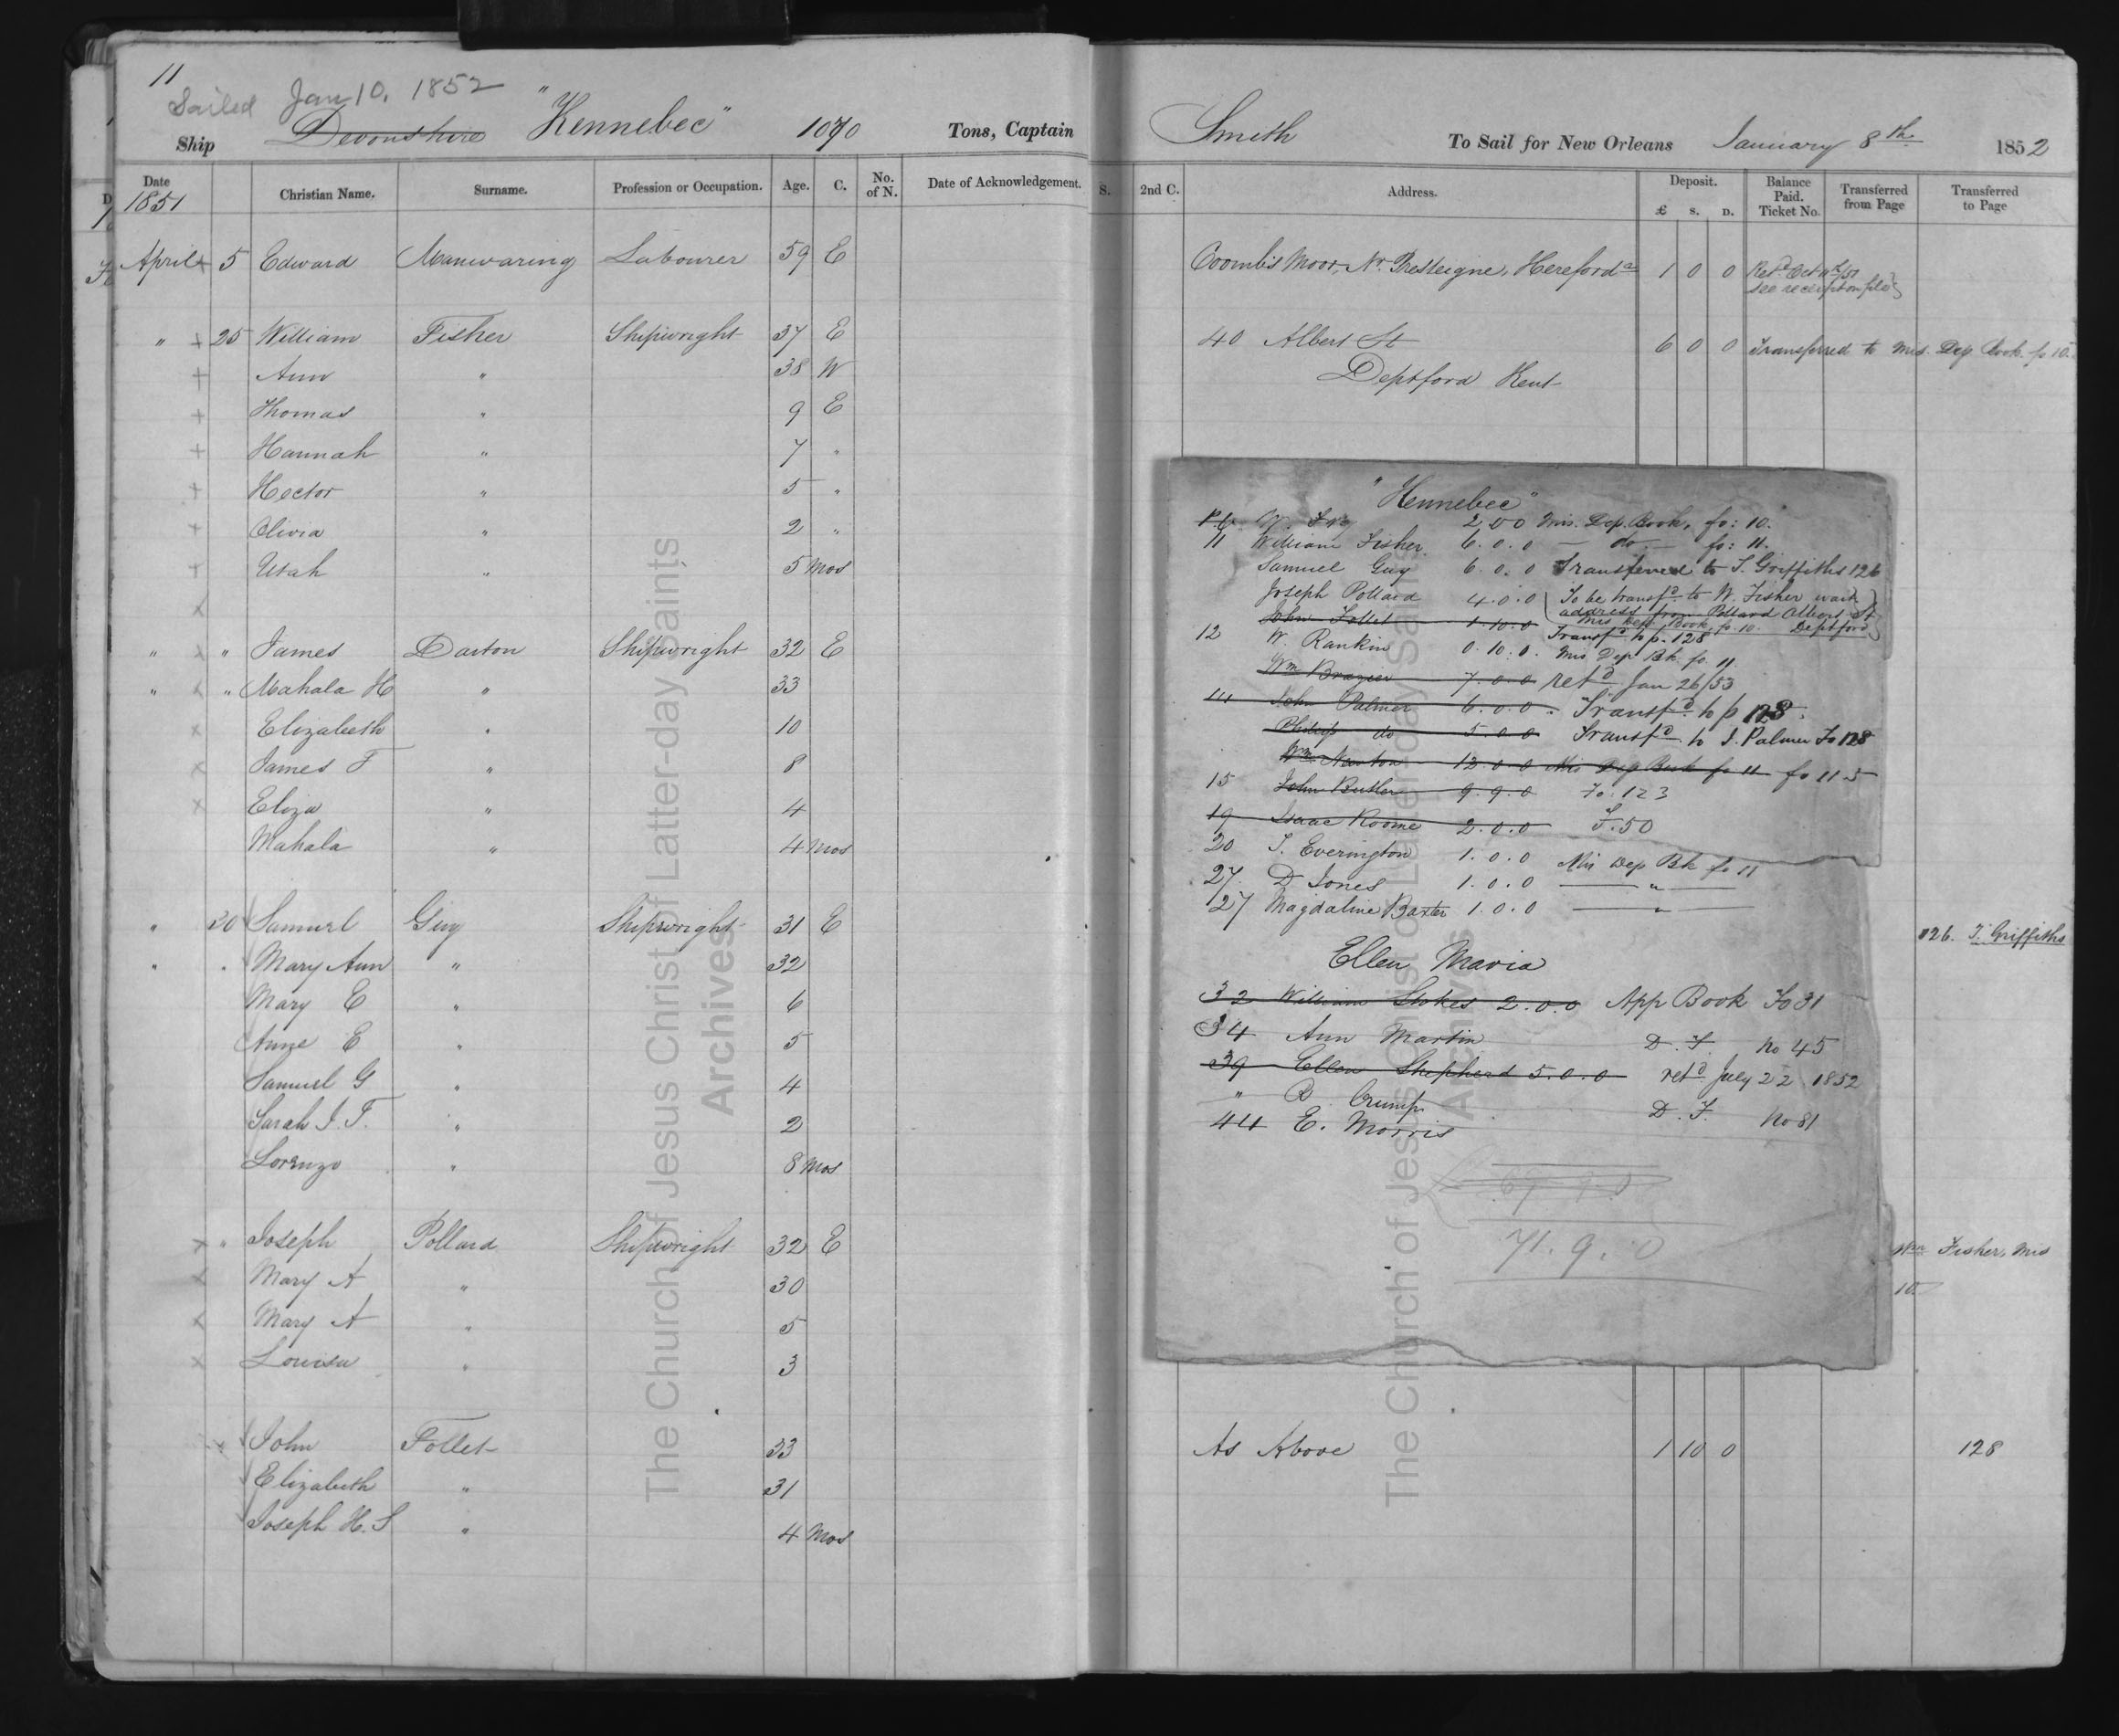 11
Sailed Jan 10, 1852
Ship Devonshire "Kennebec" 1070 Tons, Captain Smith To Sail for New Orleans January 8th 1852
Date Christian Name. Surname. Profession or Occupation. Age. C. No. of N. Date of Acknowledgement. S. 2nd C. Address. Deposit. £ s. D. Balance Paid. Ticket No. Transferred from Page Transferred to Page
1851
April + 5 Edward Manwaring Labourer 59 E Coombis Moor, Nr. Presteigne, Hereford 1 0 0 Retd Oct
see receipt on file
" + 25 William Fisher Shipwright 37 E 40 Albert St 6 0 0 Transferred to Mis. Dep. Book fo 10
+ Ann " 38 W Deptford Kent
+ Thomas " 9 E
+ Hannah " 7 "
+ Hector " 5 "
+ Olivia " 2 "
+ Utah " 5 mos
x
" x " James Darton Shipwright 32 E
" x " Mahala H " 33
x Elizabeth " 10
x James F " 8
x Eliza " 4
Mahala " 4 mos
" 30 Samuel Guy Shipwright 31 E 126. T. Griffiths
" " Mary Ann " 32
Mary E " 6
Anne E " 5
Samuel G " 4
Sarah J. F. " 2
Lorenzo " 8 mos
x " Joseph Pollard Shipwright 32 E Wm Fisher, Mis
x Mary A " 30 10
x Mary A " 5
x Louisa " 3
John Follet 33 As Above 1 10 0 128
Elizabeth " 31
Joseph H. S " 4 mos
"Kennebec"
P. 6 W. Fry 2.0.0 Mis. Dep. Book, fo: 10.
11 William Fisher 6.0.0 — do — fo: 11.
Samuel Guy 6.0.0 Transfered to T. Griffiths 126
Joseph Pollard 4.0.0 To be transfd to W. Fisher wait
address from Pollard Albert St
Mis Dep Book, fo. 10. Deptford
John Follet 1.10.0 Transfd to p. 128
12 W. Rankin 0.10.0. Mis Dep Bk. fo 11.
Wm Brazier 7.0.0 retd Jan 26/53
14 John Palmer 6.0.0. Transfd to p 128.
Philip do 5.0.0 Transfd to J. Palmer Fo 128
Wm Newton 12.0.0 Mis Dep Book fo 11 fo 115
15 John Butler 9.9.0 Fo. 123
19 Isaac Roome 2.0.0 F. 50
20 S. Everington 1.0.0 Mis Dep Bk fo 11
27. D Jones 1.0.0 — " —
27 Magdaline Baxter 1.0.0 — " —
Ellen Maria
32 William Stokes 2.0.0 App Book Fo 31
34 Ann Martin D. F. No 45
39 Ellen Shepherd 5.0.0 retd July 22 1852
" D Crump
44 E. Morris D. F. No 81
71.9.0
The Church of Jesus Christ of Latter-day Saints
Archives
The Church of Jesus Christ of Latter-day Saints
Archives